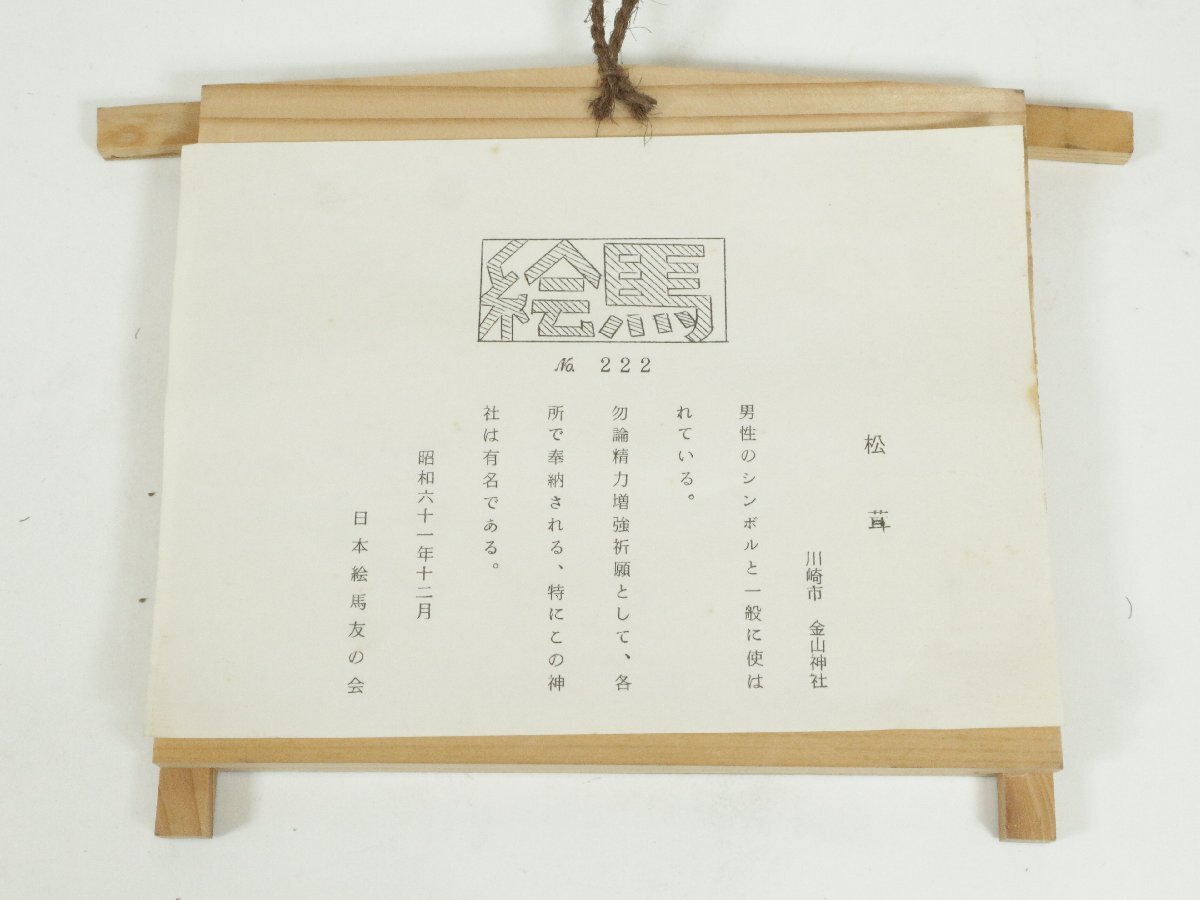 絵馬
No. 222
松茸
川崎市 金山神社
男性のシンボルと一般に使は
れている。
勿論精力増強祈願として、各
所で奉納される、特にこの神
社は有名である。
昭和六十一年十二月
日本絵馬友の会